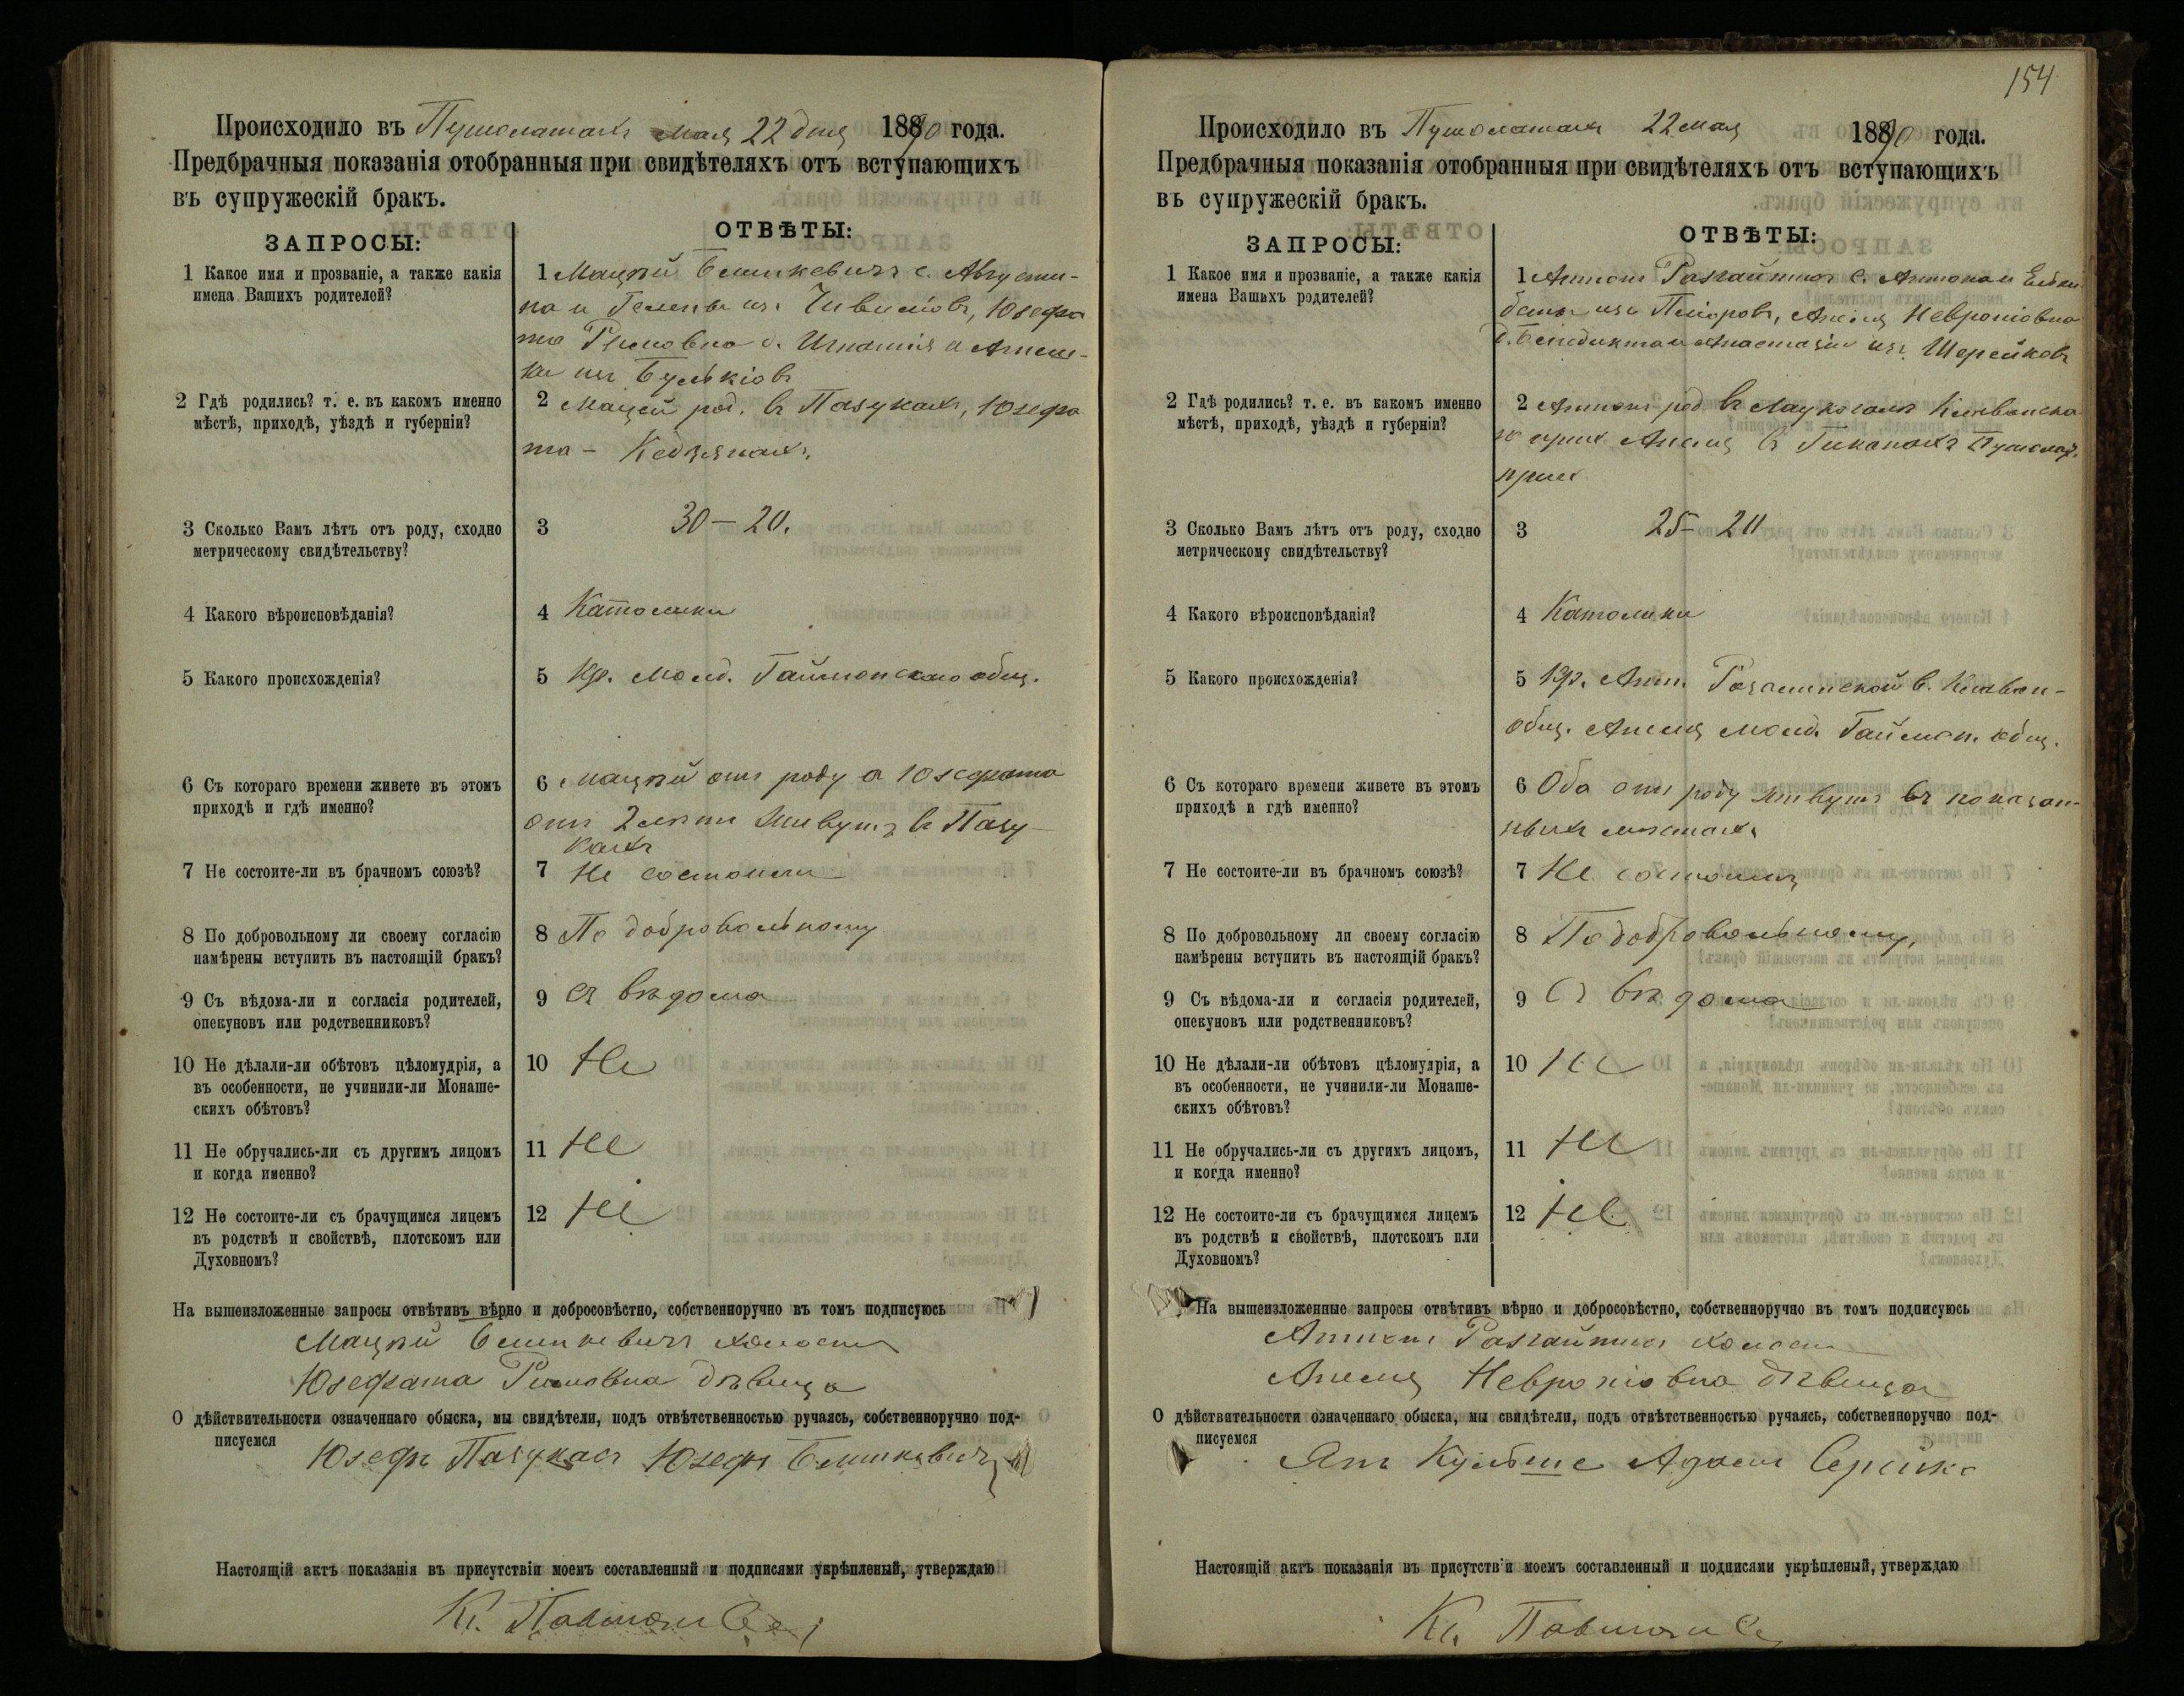 Происходило въ Пушолатахъ мая 22 дня 1890 года.
Предбрачныя показанія отобранныя при свидѣтеляхъ отъ вступающихъ
въ супружескій бракъ.
ЗАПРОСЫ:
ОТВѢТЫ:
1 Какое имя и прозваніе, а также какія
имена Вашихъ родителей?
1 Мацѣй с. Августи-
на и из Юзефа
та Римовна д. Игнатія и Агнеш-
ки из
2 Гдѣ родились? т. е. въ какомъ именно
мѣстѣ, приходѣ, уѣздѣ и губерніи?
2 Мацей род. въ Пазукахъ, Юзефа
та –
3 Сколько Вамъ лѣтъ отъ роду, сходно
метрическому свидѣтельству?
3 30 – 20.
4 Какого вѣроисповѣданія?
4 Католики
5 Какого происхожденія?
5 Кр. общ.
6 Съ котораго времени живете въ этомъ
приходѣ и гдѣ именно?
6 Мацѣй отъ роду а Юзефата
отъ 2 лѣтъ живутъ въ Пазу-
кахъ
7 Не состоите-ли въ брачномъ союзѣ?
7 Не состоимъ
8 По добровольному ли своему согласію
намѣрены вступить въ настоящій бракъ?
8 По добровольному
9 Съ вѣдома-ли и согласія родителей,
опекуновъ или родственниковъ?
9 Съ вѣдома
10 Не дѣлали-ли обѣтовъ цѣломудрія, а
въ особенности, не учинили-ли Монаше-
скихъ обѣтовъ?
10 Не
11 Не обручались-ли съ другимъ лицомъ
и когда именно?
11 Не
12 Не состоите-ли съ брачущимся лицемъ
въ родствѣ и свойствѣ, плотскомъ или
Духовномъ?
12 Не
На вышеизложенные запросы отвѣтивъ вѣрно и добросовѣстно, собственноручно въ томъ подписуюсь
Мацѣй холостъ
Юзефата Римовна дѣвица
О дѣйствительности означеннаго обыска, мы свидѣтели, подъ отвѣтственностью ручаясь, собственноручно под-
писуемся
Юзефъ Пазукасъ Юзефъ
Настоящій актъ показанія въ присутствіи моемъ составленный и подписями укрѣпленый, утверждаю
Кс.
154
Происходило въ Пушолатахъ 22 мая 1890 года.
Предбрачныя показанія отобранныя при свидѣтеляхъ отъ вступающихъ
въ супружескій бракъ.
ЗАПРОСЫ:
ОТВѢТЫ:
1 Какое имя и прозваніе, а также какія
имена Вашихъ родителей?
1 Антонъ с. Антона и
изъ Анеля Невроніовна
д. Бенедикта и Анастазіи изъ Шерейковъ
2 Гдѣ родились? т. е. въ какомъ именно
мѣстѣ, приходѣ, уѣздѣ и губерніи?
2 Антонъ род въ
прих Анеля въ
прих
3 Сколько Вамъ лѣтъ отъ роду, сходно
метрическому свидѣтельству?
3 25 –
4 Какого вѣроисповѣданія?
4 Католики
5 Какого происхожденія?
5 Кр. Ант. в.
общ. Анеля общ.
6 Съ котораго времени живете въ этомъ
приходѣ и гдѣ именно?
6 Оба отъ роду живутъ въ показан-
ныхъ мѣстахъ
7 Не состоите-ли въ брачномъ союзѣ?
7 Не состоимъ
8 По добровольному ли своему согласію
намѣрены вступить въ настоящій бракъ?
8 По добровольному,
9 Съ вѣдома-ли и согласія родителей,
опекуновъ или родственниковъ?
9 Съ вѣдома
10 Не дѣлали-ли обѣтовъ цѣломудрія, а
въ особенности, не учинили-ли Монаше-
скихъ обѣтовъ?
10 Не
11 Не обручались-ли съ другимъ лицомъ,
и когда именно?
11 Не
12 Не состоите-ли съ брачущимся лицемъ
въ родствѣ и свойствѣ, плотскомъ или
Духовномъ?
12 Не
На вышеизложенные запросы отвѣтивъ вѣрно и добросовѣстно, собственноручно въ томъ подписуюсь
Антонъ холостъ
Анеля Невроніовна дѣвица
О дѣйствительности означеннаго обыска, мы свидѣтели, подъ отвѣтственностью ручаясь, собственноручно под-
писуемся
Янъ Адамъ
Настоящій актъ показанія въ присутствіи моемъ составленный и подписями укрѣпленый, утверждаю
Кс.